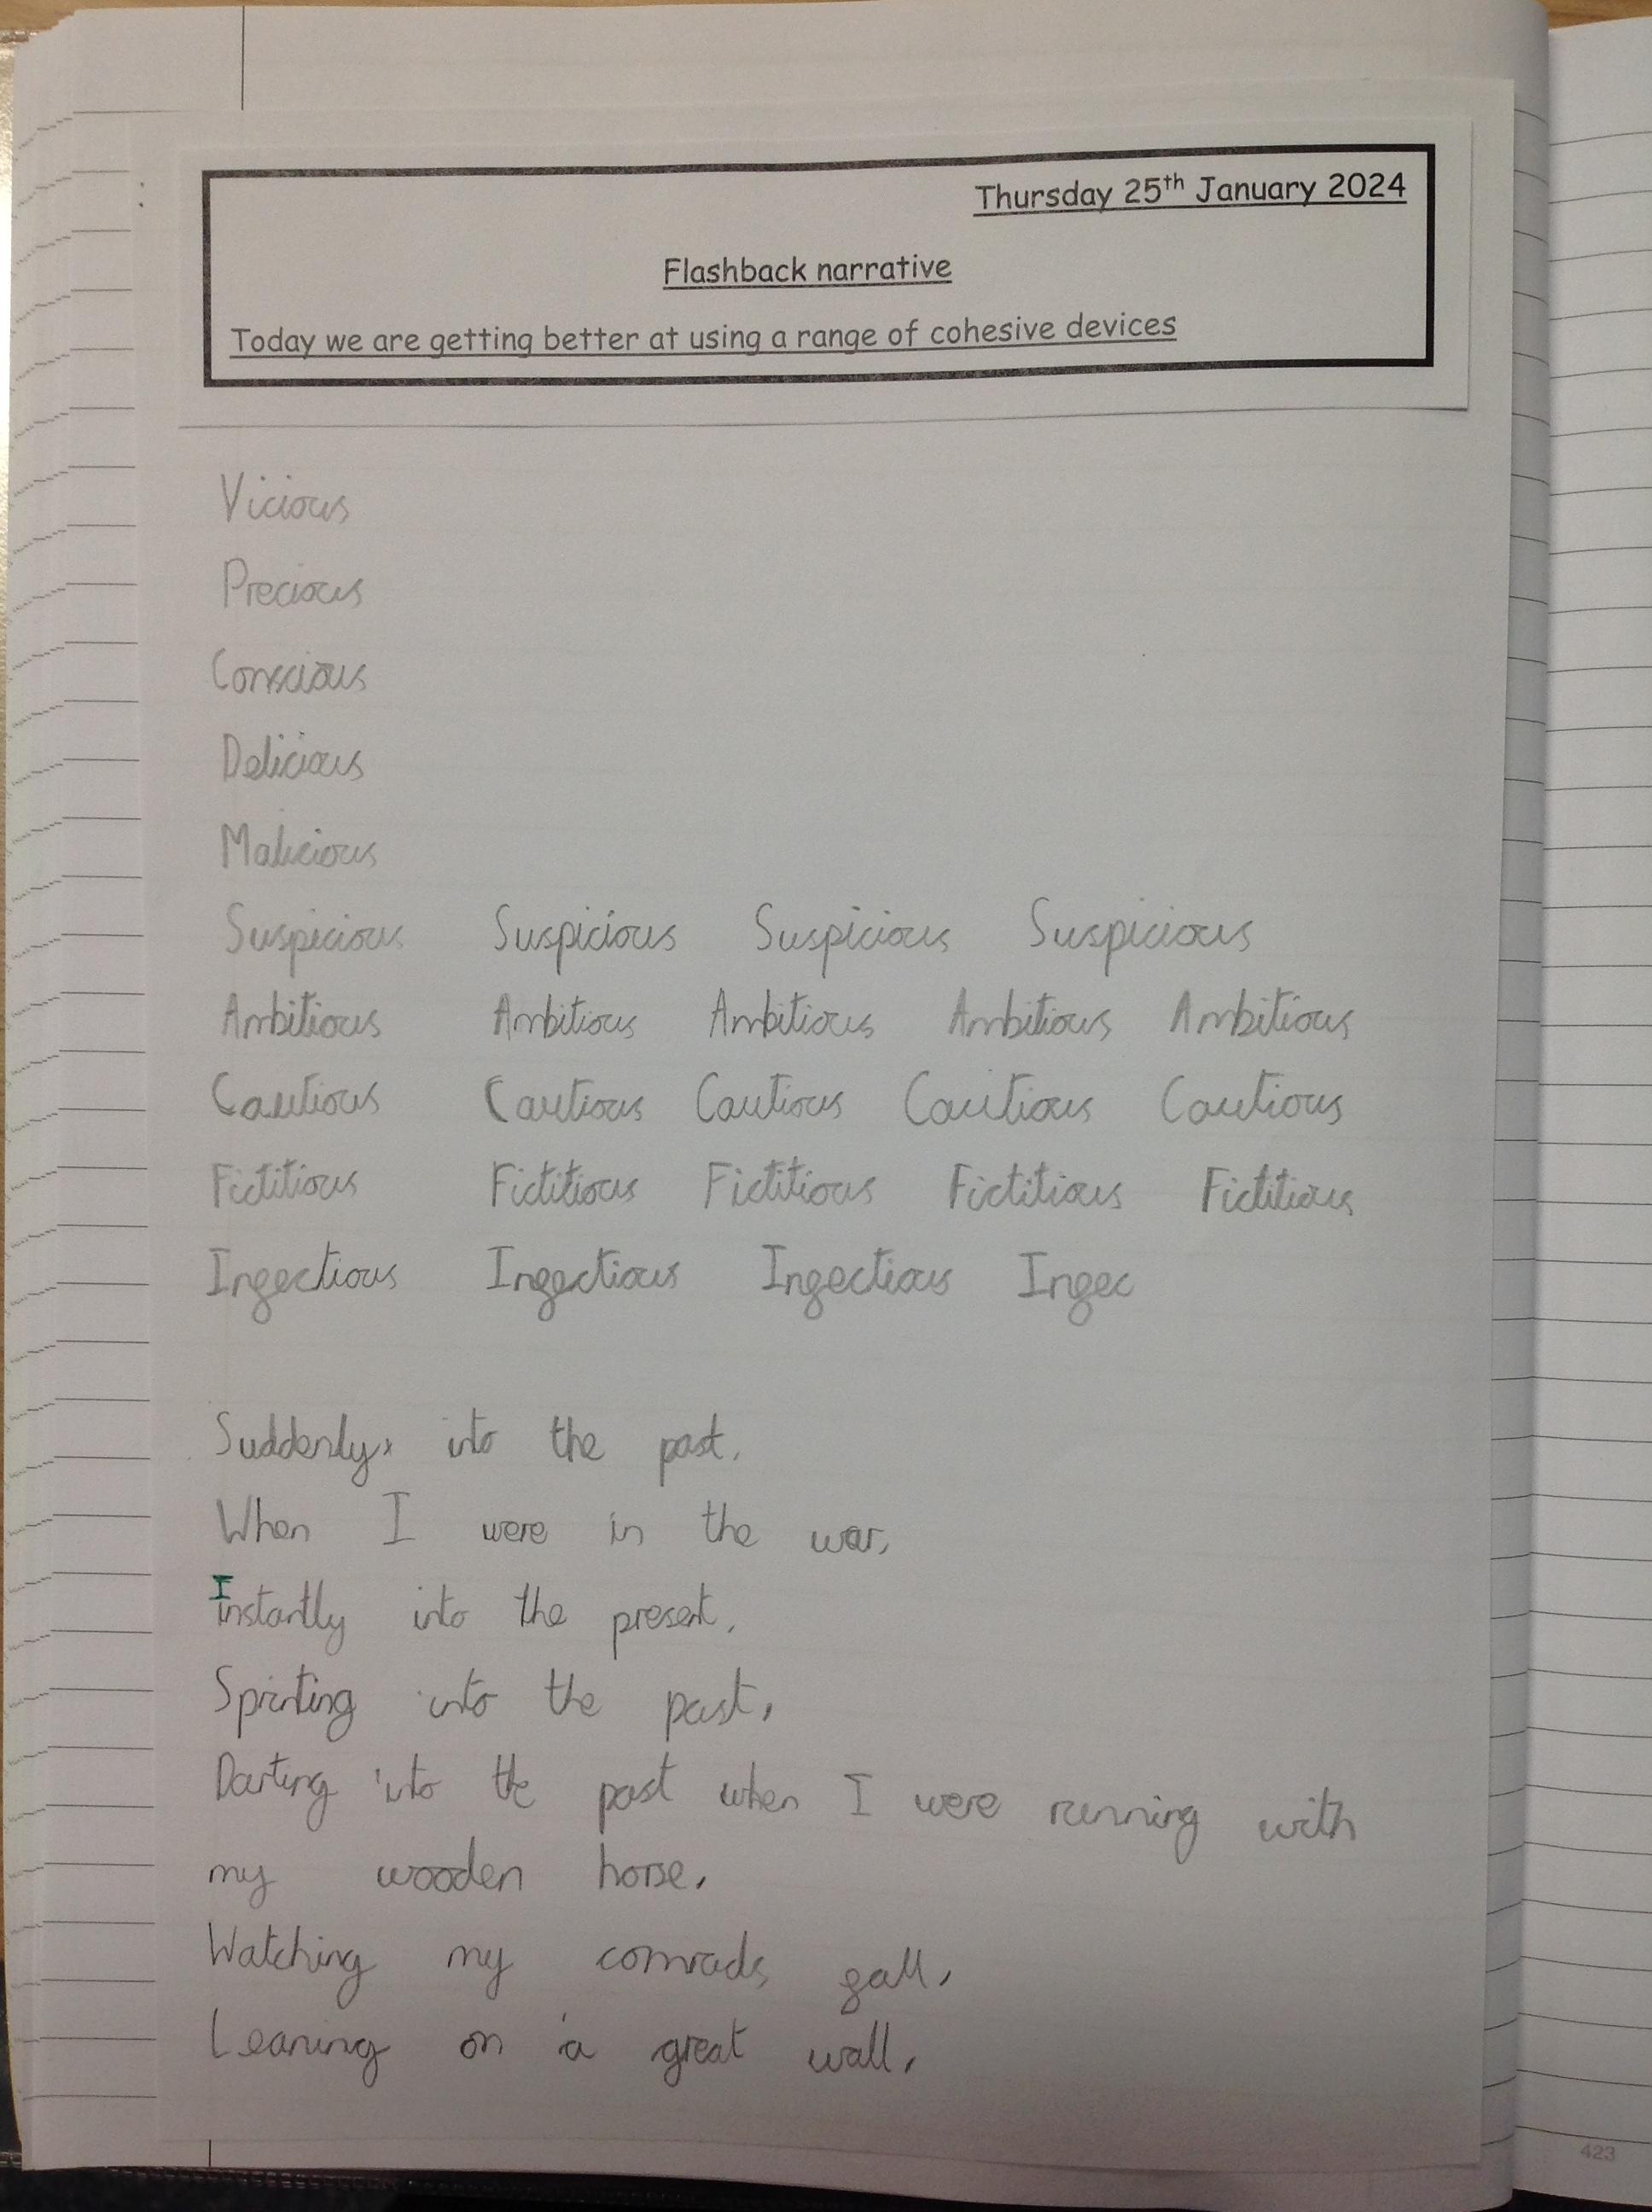 Thursday 25th January 2024
Flashback narrative
Today we are getting better at using a range of cohesive devices
Vicious
Precious
Conscious
Delicious
Malicious
Suspicious Suspicious Suspicious Suspicious
Ambitious Ambitious Ambitious Ambitious Ambitious
Cautious Cautious Cautious Cautious Cautious
Fictitious Fictitious Fictitious Fictitious Fictitious
Infectious Infectious Infectious Infec
Suddenly, into the past,
When I were in the war,
Instantly into the present,
Sprinting into the past,
Darting into the past when I were running with
my wooden horse,
Watching my comrads fall,
Leaning on a great wall,
423